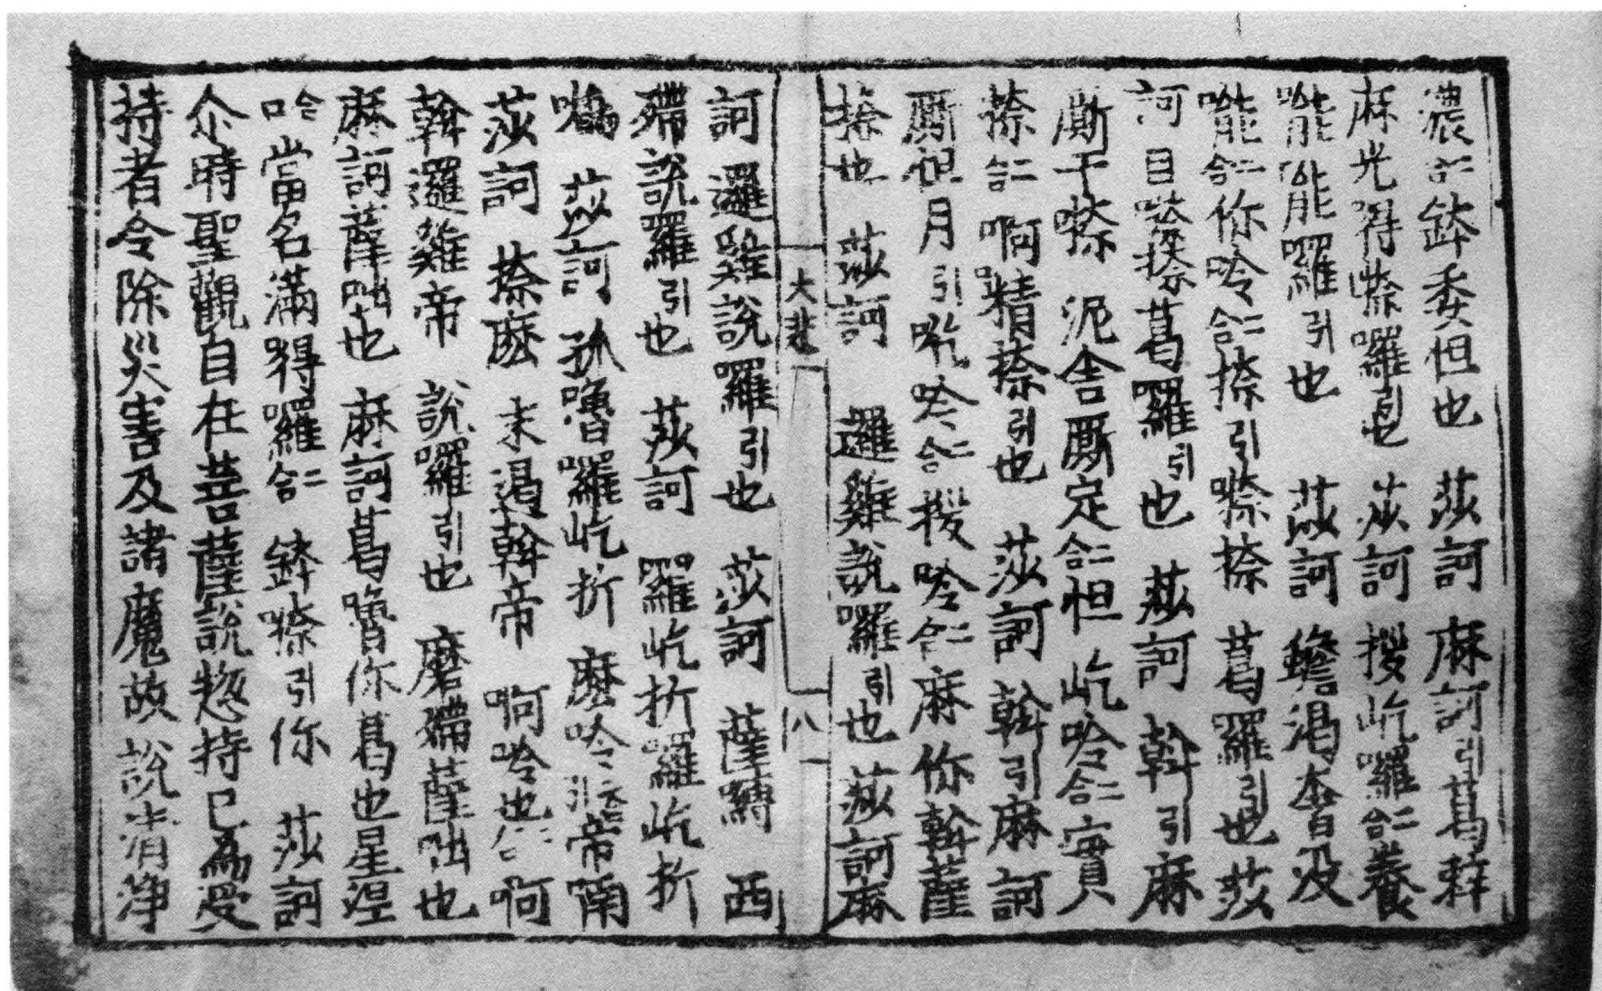 濃仁合鉢委但也 莎訶 麻訶引葛辢
麻光得㗚囉引也 莎訶 授屹囉仁合養
㘄㘄囉引也 莎訶 蟾渴沓汲
㘄仁合你唥仁合捺引㗚捺 葛囉引也莎
訶 目㗚捺葛囉引也 莎訶 斡引麻
厮干㗚 泥舍厮定仁合怛 屹唥仁合實
捺仁合啊精捺引也 莎訶 斡引麻訶
厮怛月引吃唥仁合授唥仁合麻你斡薩
捺也 莎訶 邏雞說囉引也 莎訶麻
大悲
八
訶 邏雞說囉引也 莎訶 薩嚩 西
殢說囉引也 莎訶 囉屹折囉屹折
莎訶 孤嚕囉屹折 麼唥引帝
莎訶 捺麼 末遏斡帝 啊唥也 啊
斡邏雞帝 說囉引也 磨殢薩咄也
麻訶薩咄也 麻訶葛嚕你葛也星涅
唥當名滿得囉仁合 鉢㗚引你 莎訶
尒時聖觀自在菩薩說惣持已為受
持者令除災害及諸魔故 說清淨